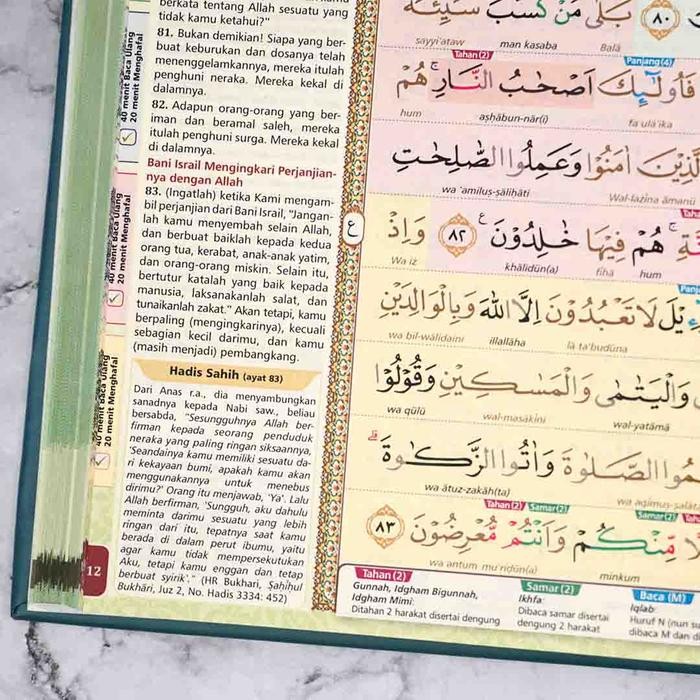 berkata tentang Allah sesuatu yang
tidak kamu ketahui?"
81. Bukan demikian! Siapa yang ber-
buat keburukan dan dosanya telah
menenggelamkannya, mereka itulah
penghuni neraka. Mereka kekal di
dalamnya.
82. Adapun orang-orang yang ber-
iman dan beramal saleh, mereka
itulah penghuni surga. Mereka kekal
di dalamnya.
Bani Israil Mengingkari Perjanjian-
nya dengan Allah
83. (Ingatlah) ketika Kami mengam-
bil perjanjian dari Bani Israil, "Jangan-
lah kamu menyembah selain Allah,
dan berbuat baiklah kepada kedua
orang tua, kerabat, anak-anak yatim,
dan orang-orang miskin. Selain itu,
bertutur katalah yang baik kepada
manusia, laksanakanlah salat, dan
tunaikanlah zakat." Akan tetapi, kamu
berpaling (mengingkarinya), kecuali
sebagian kecil darimu, dan kamu
(masih menjadi) pembangkang.
Hadis Sahih (ayat 83)
Dari Anas r.a., dia menyambungkan
sanadnya kepada Nabi saw., beliau
bersabda, "Sesungguhnya Allah ber-
firman kepada seorang penduduk
neraka yang paling ringan siksaannya,
'Seandainya kamu memiliki sesuatu da-
ri kekayaan bumi, apakah kamu akan
menggunakannya untuk menebus
dirimu?' Orang itu menjawab, 'Ya'. Lalu
Allah berfirman, 'Sungguh, aku dahulu
meminta darimu sesuatu yang lebih
ringan dari itu, tepatnya saat kamu
berada di dalam perut ibumu, yaitu
agar kamu tidak mempersekutukan
Aku, tetapi kamu enggan dan tetap
berbuat syirik'." (HR Bukhari, Ṣaḥīḥul
Bukhārī, Juz 2, No. Hadis 3334: 452)
40 menit Baca Ulang
20 menit Menghafal
40 menit Baca Ulang
20 menit Menghafal
40 menit Baca Ulang
20 menit Menghafal
12
ع
بَلٰى مَنْ كَسَبَ سَيِّئَةً ٨٠
sayyi'ataw man kasaba Balā
Tahan (2) Panjang (4)
فَاُولٰۤىِٕكَ اَصْحٰبُ النَّارِ ۚ هُمْ
hum aṣḥābun-nār(i) fa ulā'ika
الَّذِيْنَ اٰمَنُوْا وَعَمِلُوا الصّٰلِحٰتِ
wa 'amiluṣ-ṣāliḥāti Wal-lażīna āmanū
هُمْ فِيْهَا خٰلِدُوْنَ ࣖ ٨٢ وَاِذْ
Wa iż khālidūn(a) fīhā hum
لَا تَعْبُدُوْنَ اِلَّا اللّٰهَ وَبِالْوَالِدَيْنِ
wa bil-wālidaini illallāha lā ta'budūna
وَالْيَتٰمٰى وَالْمَسٰكِيْنِ وَقُوْلُوْا
wa qūlū wal-masākīni wal-yatāmā
الصَّلٰوةَ وَاٰتُوا الزَّكٰوةَ ۗ
wa ātuz-zakāh(ta) wa aqīmuṣ-ṣalāta
Tahan (2) Samar (2) Samar (2)
مِّنْكُمْ وَاَنْتُمْ مُّعْرِضُوْنَ ٨٣
wa antum mu'riḍūn(a) minkum
Tahan (2)
Gunnah, Idgham Bigunnah,
Idgham Mimi:
Ditahan 2 harakat disertai dengung
Samar (2)
Ikhfa:
Dibaca samar disertai
dengung 2 harakat
Baca (M)
Iqlab:
Huruf N (nun su
dibaca M dan di